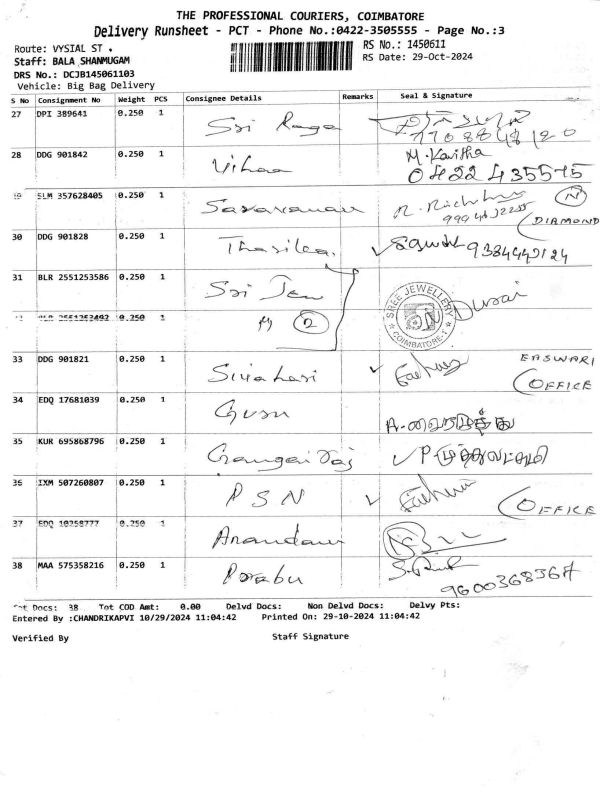 THE PROFESSIONAL COURIERS, COIMBATORE
Delivery Runsheet - PCT - Phone No.:0422-3505555 - Page No.:3
Route: VYSIAL ST . RS No.: 1450611
Staff: BALA SHANMUGAM RS Date: 29-Oct-2024
DRS No.: DCJB145061103
Vehicle: Big Bag Delivery
S No Consignment No Weight PCS Consignee Details Remarks Seal & Signature
27 DPI 389641 0.250 1 Sri Ranga 7708848120
28 DDG 901842 0.250 1 Vihaa M. Kavitha
0422 435575
SLM 357628405 0.250 1 Saravanan N
DIAMOND
30 DDG 901828 0.250 1 9384449124
31 BLR 2551253586 0.250 1 Sri Durai
SREE JEWELLERY
COIMBATORE-1
2551253492 0.250 1 2
33 DDG 901821 0.250 1 Sivahari EASWARI
OFFICE
34 EDQ 17681039 0.250 1 Guru
35 KUR 695868796 0.250 1 Gangai Raj
36 IXM 507260807 0.250 1 P S N OFFICE
37 EDQ 10258777 0.250 1 Anandam
38 MAA 575358216 0.250 1 Prabu
9600368364
Tot Docs: 38 Tot COD Amt: 0.00 Delvd Docs: Non Delvd Docs: Delvy Pts:
Entered By :CHANDRIKAPVI 10/29/2024 11:04:42 Printed On: 29-10-2024 11:04:42
Verified By Staff Signature